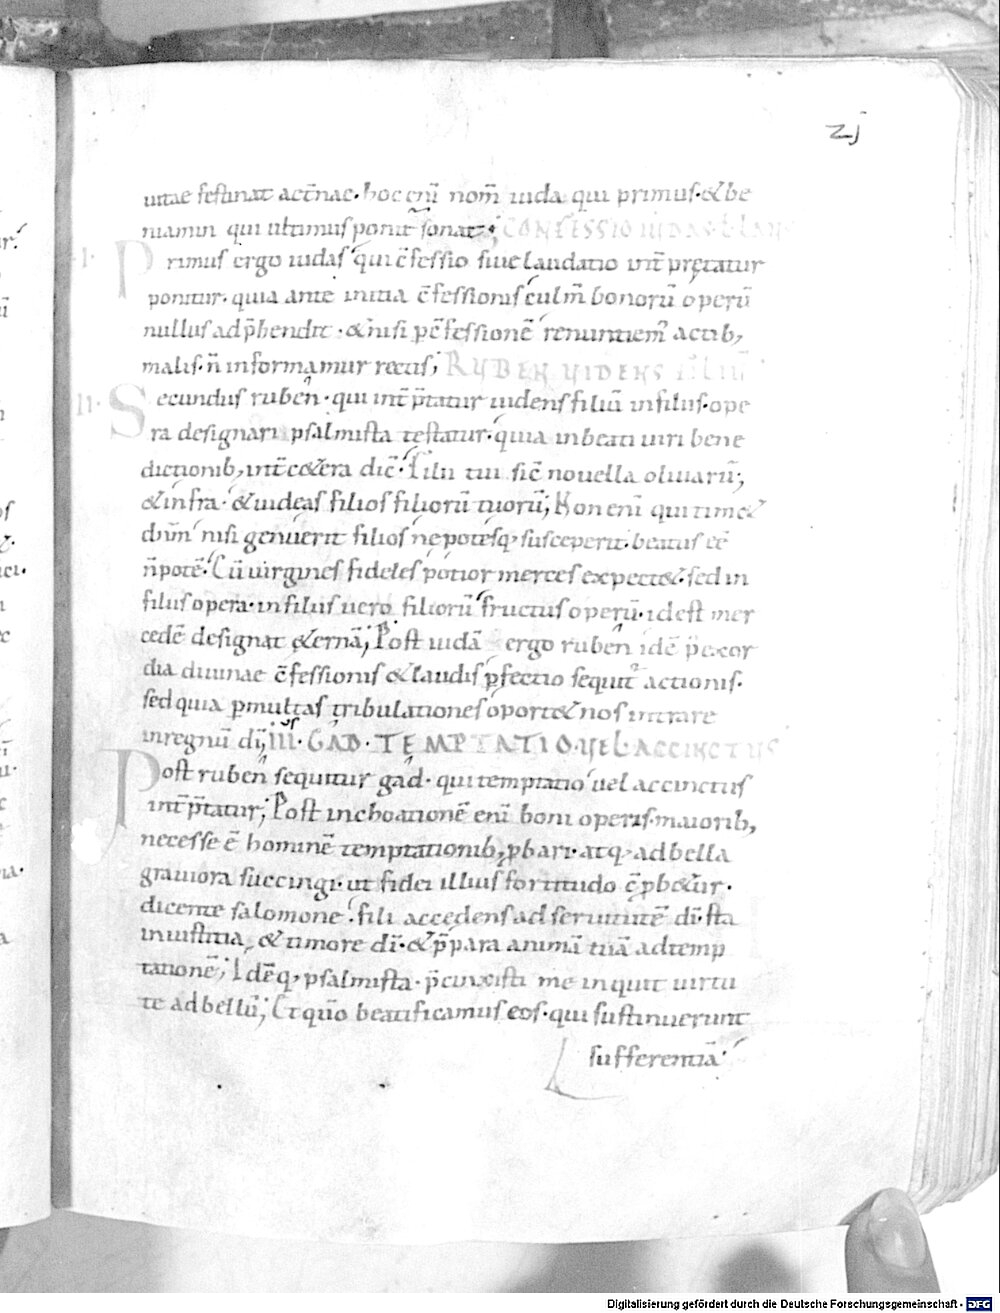 21
uitae festinat aet̄nae· hoc enī nom̄ iuda qui primus· & be
niamin qui ultimus ponit᷑ sonat; CONFESSIO IUDAS
·I· Primus ergo iudas qui c̄fessio siue laudatio int̄p̄tatur
ponitur· quia ante initia c̄fessionis bonorū operū
nullus adp̄hendit· & nisi p̄ c̄fessionē renuntiem᷑ actib;
malis· n̄ informamur rectis; RUBEN UIDENS FILIŪ
·II· Secundus ruben· qui int̄p̄tatur uidens filiū in filiis· ope
ra designari psalmista testatur· quia in beati uiri bene
dictionib; int̄ cetera dic̄· filii tui sic̄ nouella oliuarū;
& infra· & uideas filios filiorū tuorū; Non enī qui tim&
dn̄m nisi genuerit filios nepotesq; susceperit· beatus eē
n̄ potē· Cū uirgines fideles potior merces expect&· sed in
filiis opera· in filiis uero filiorū fructus operū· id est mer
cedē designat &ernā; Post iudā ergo ruben idē p̄ exor
dia diuinae c̄fessionis & laudis p̄fectio sequit᷑ actionis·
sed quia p̄ multas tribulationes oport& nos intrare
in regnū dī; III· GAD· TEMPTATIO UEL ACCINCTUS
Post ruben sequitur gad· qui temptatio uel accinctus
int̄p̄tatur; Post inchoationē enī boni operis· maiorib;
necesse ē hominē temptationib; p̄bari· atq; ad bella
grauiora succingi· ut fidei illius fortitudo c̄p̄b&ur·
dicente salomone· fili accedens ad seruitutē dī· sta
in iustitia, & timore dī· & p̄para animā tuā ad temp
tationē; Idēq; psalmista· p̄cinxisti me inquit uirtu
te ad bellū; Et qūo beatificamus eos· qui sustinuerunt
sufferentiā
Digitalisierung gefördert durch die Deutsche Forschungsgemeinschaft - DFG